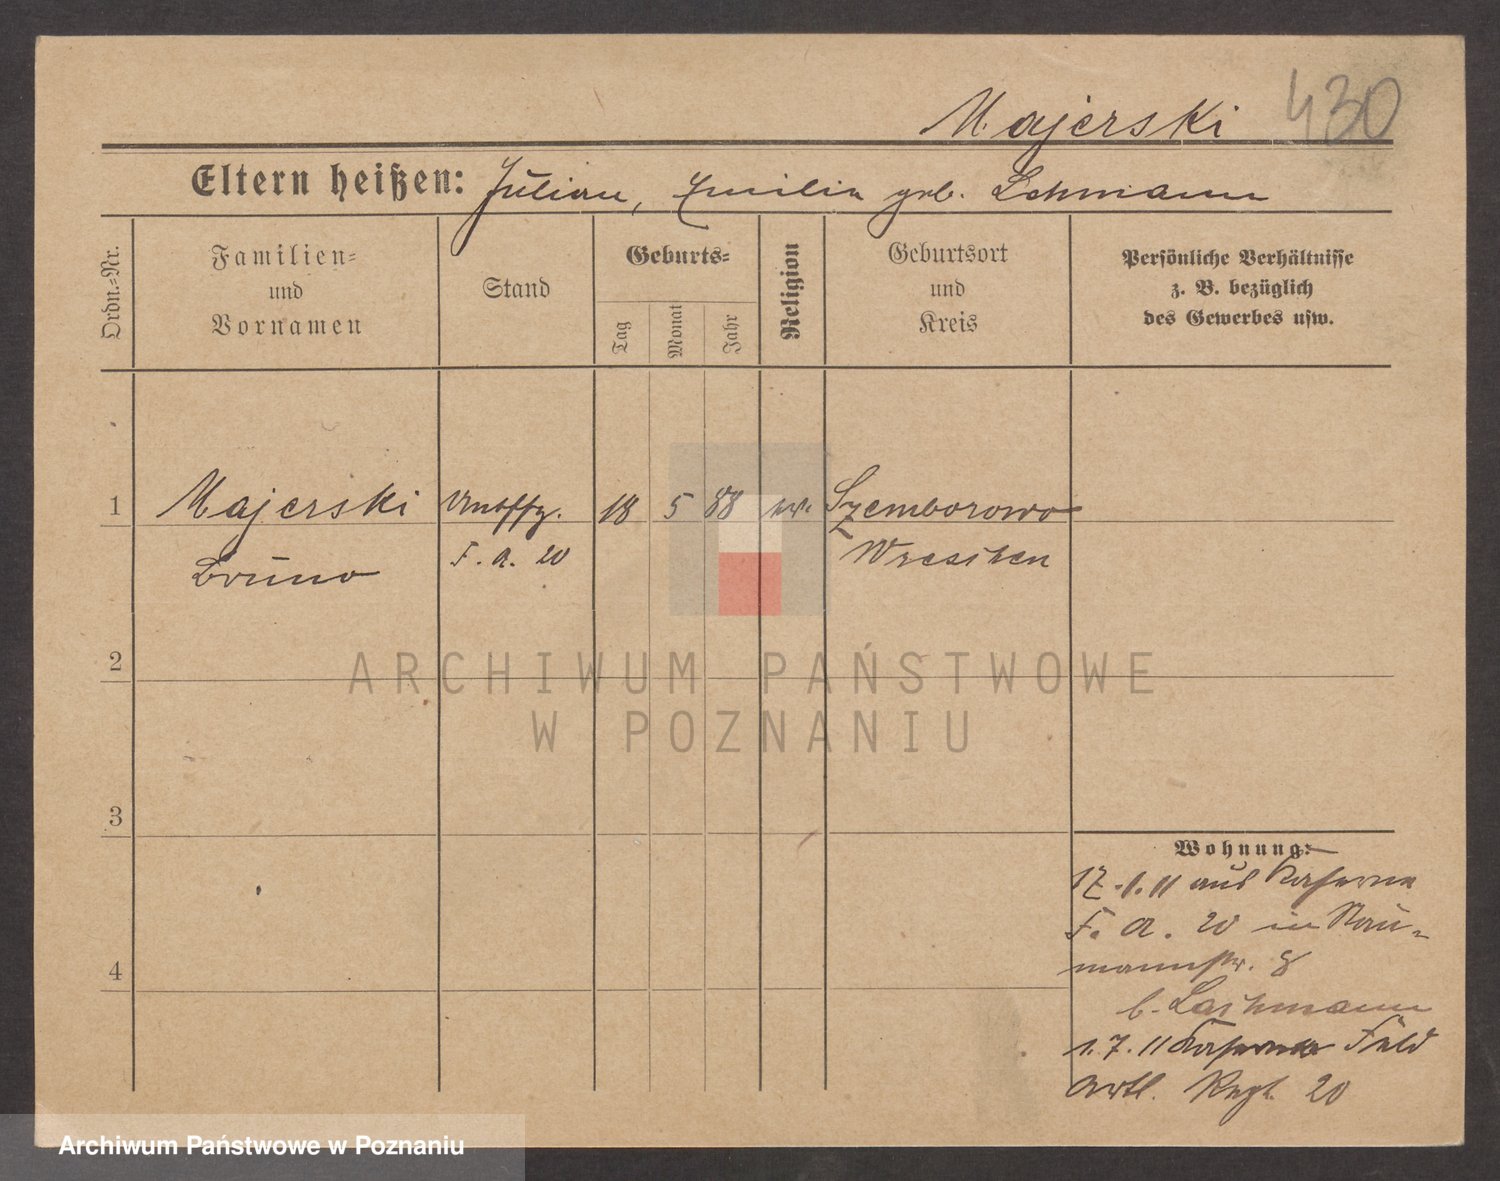 Majerski 430
Eltern heißen: Julian, Emilia geb. Lehmann
Ordn.-Nr.
Familien-
und
Vornamen
Stand
Geburts-
Tag
Monat
Jahr
Religion
Geburtsort
und
Kreis
Persönliche Verhältnisse
z. B. bezüglich
des Gewerbes usw.
1 Majerski Untffz. 18 5 88 ev. Szemborowo
Bruno F. A. 20 Wreschen
2
ARCHIWUM PAŃSTWOWE
W POZNANIU
3
4
Wohnung:
17.1.11 aus Kaserne
F. A. 20 in Nau-
mannstr. 8
b. Lachmann
1.7.11 Kaserne Feld
Artl. Regt. 20
Archiwum Państwowe w Poznaniu